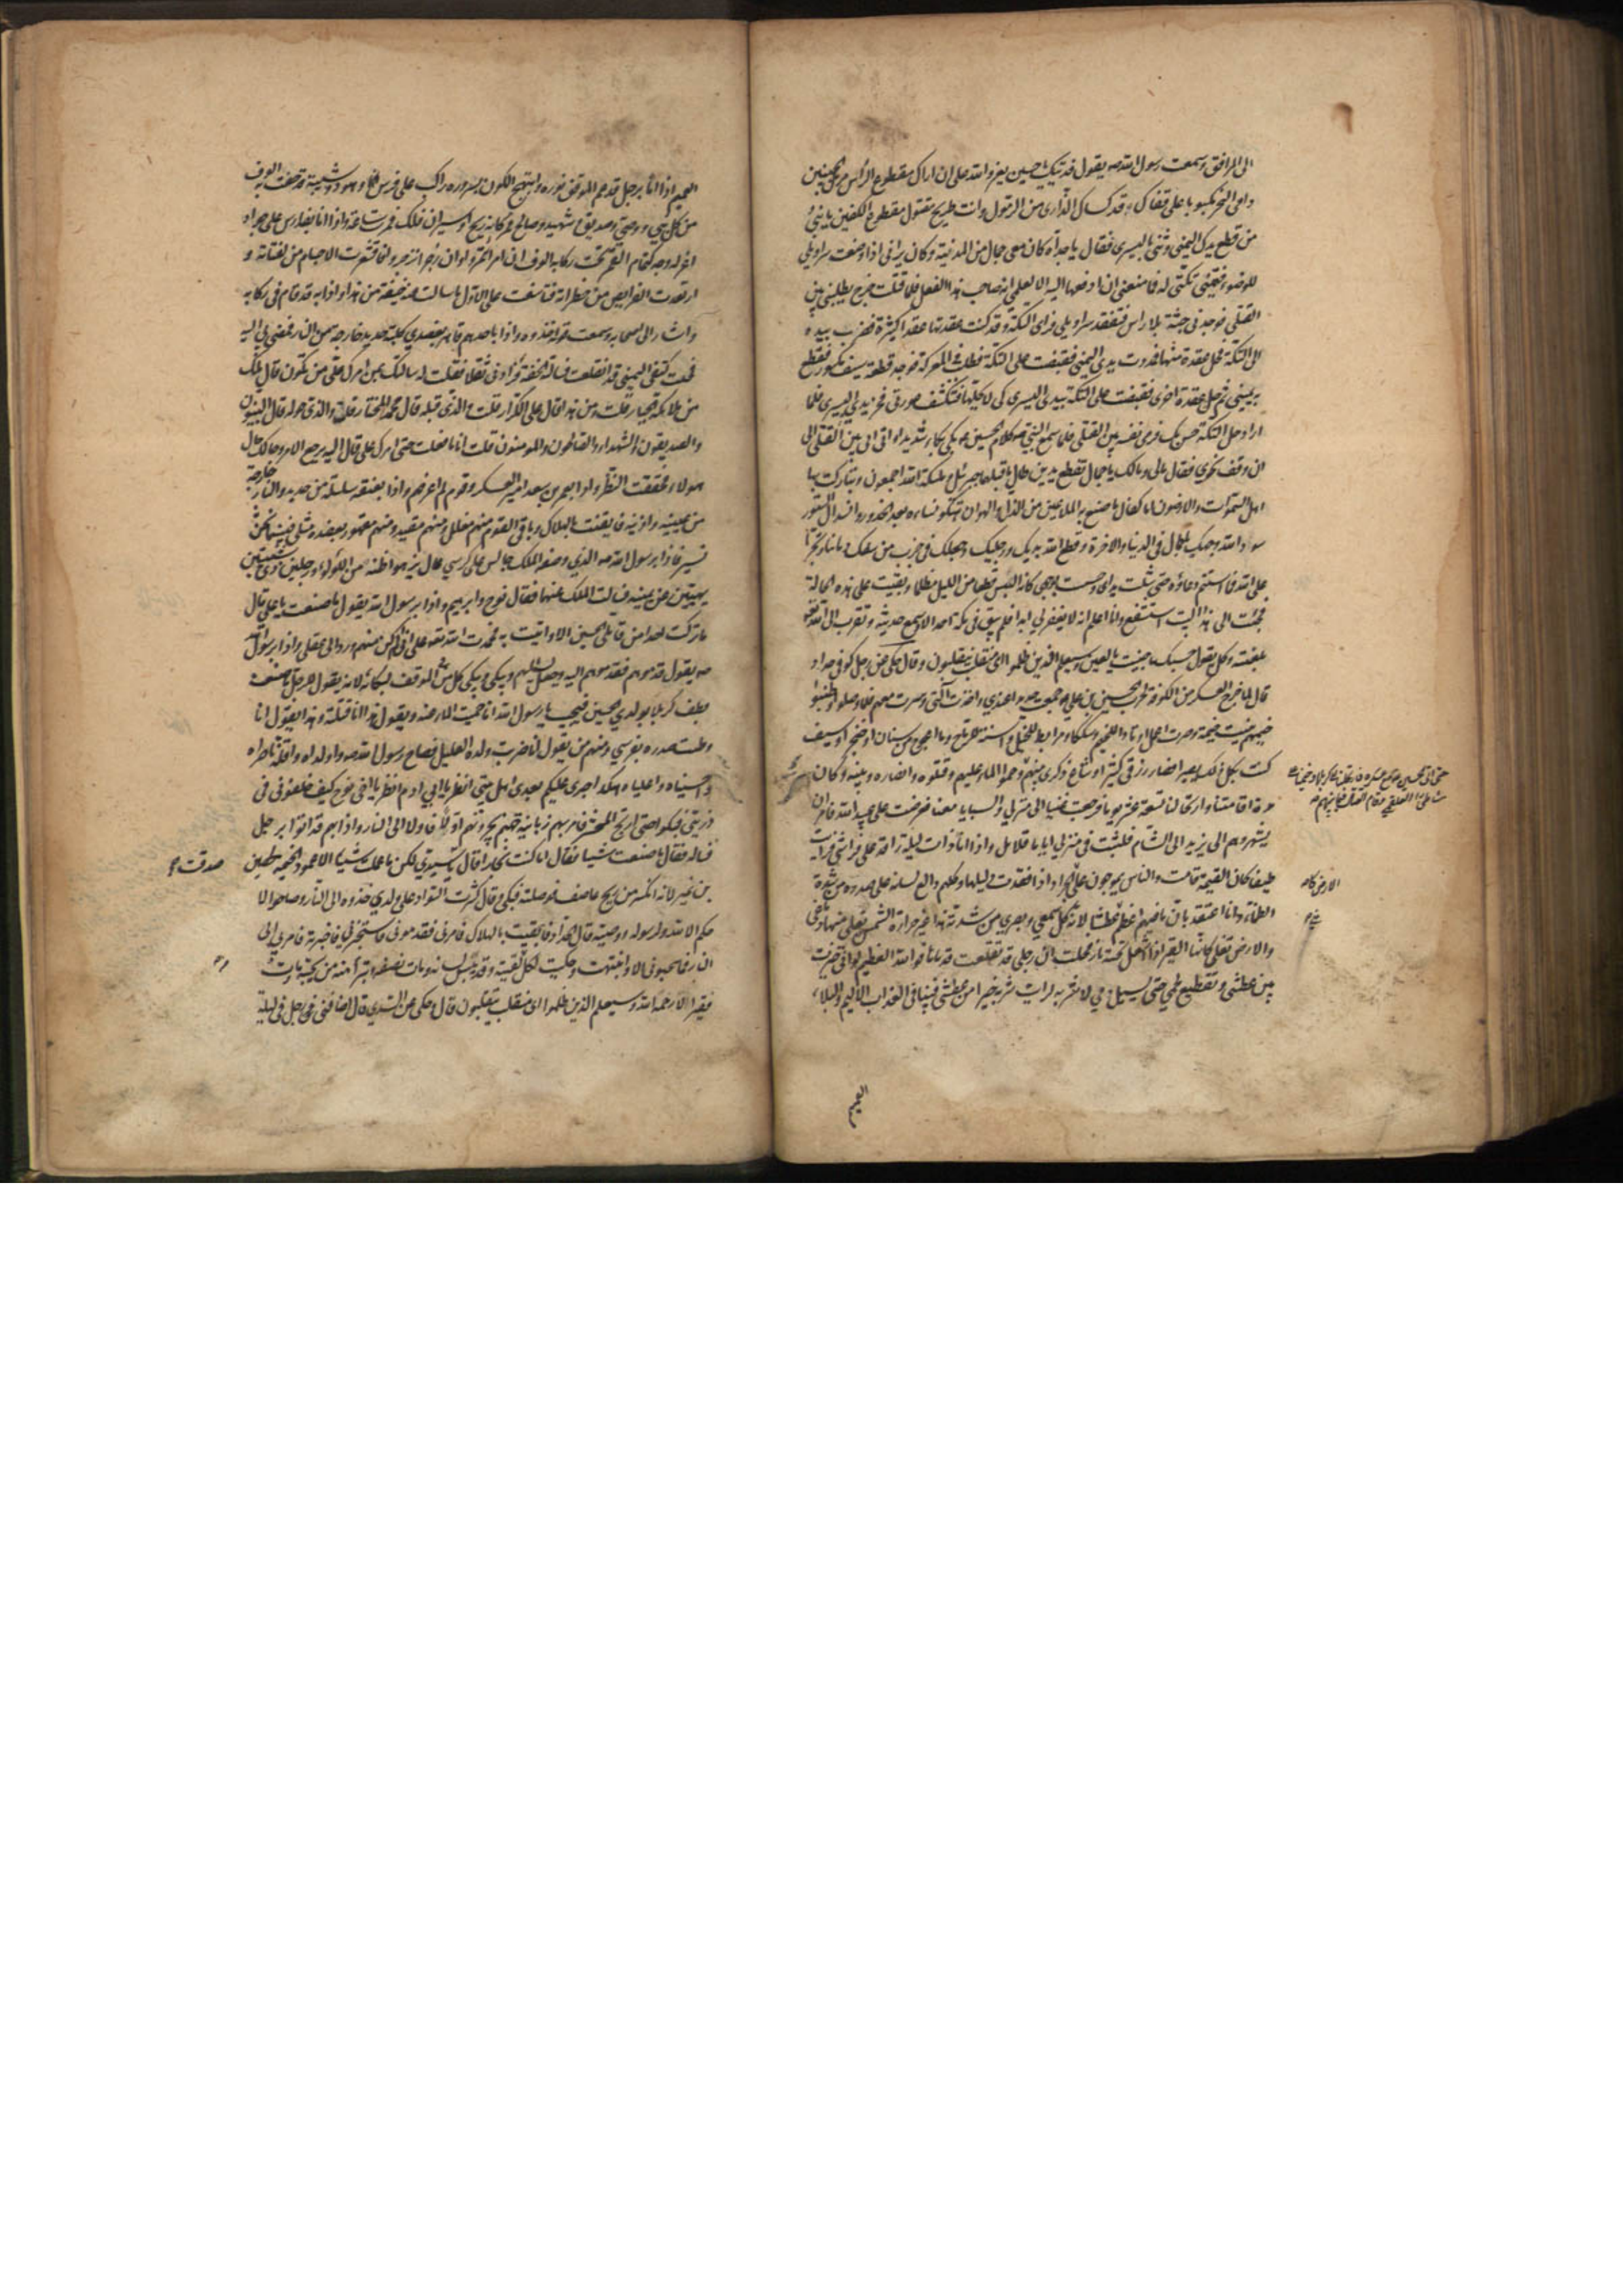 الى المرافق وسمعت رسول الله ص يقول فديتك يا حسين يعز والله على ان اراك مقطوع الرأس مرمل الجبينين
دامى النحر مكبوبا على قفاك قد كساك الذارى من الرمول وانت طريح مقتول مقطوع الكفين يا بنى
من قطع يدك اليمنى وثنى باليسرى فقال يا جداه كان معى جمال من المدينة وكان يرانى اذا وضعت سراويلى
للوضوء فيتمنى تكتى له فما منعنى ان ادفعها اليه الا لعلمى انه صاحب هذا الفعل فلما قتلت خرج يطلبنى بين
القتلى فوجدنى جثة بلا راس فتفقد سراويلى فراى التكة وقد كنت عقدتها عقدا كثيرة فضرب بيده
الى التكة فحل عقدة منها فمددت يدى اليمنى فقبضت على التكة فطلب فى المعركة فوجد قطعة سيف مكسور فقطع
به يمينى ثم حل عقدة اخرى فقبضت على التكة بيدى اليسرى كى لا يحلها فتنكشف عورتى فحز يدى اليسرى فلما
اراد حل التكة حس بك فرمى نفسه بين القتلى فلما سمع النبى ص كلام الحسين بكى بكاء شديدا واتى الى بين القتلى الى
ان وقف نحوى فقال مالى ومالك يا جمال تقطع يدين طال ما قبلهما جبرئيل وملئكة الله اجمعون وتباركت بها
اهل السموات والارضون اما كفاك ما صنع به الملاعين من الذل والهوان هتكوا نساءه بعد الخدور وانسدال الستور
سود الله وجهك يا جمال فى الدنيا والاخرة وقطع الله يديك ورجليك وجعلك فى حزب من سفك دماءنا وتجرأ
على الله فما استتم دعاؤه حتى شلت يداى وحسست بوجهى كانه البس قطعا من الليل مظلما وبقيت على هذه الحالة
فجئت الى هذا البيت استشفع وانا اعلم انه لا يغفر لى ابدا فلم يبق فى مكة احد الا سمع حديثه وتقرب الى الله تعالى
بلعنته وكل يقول حسبك ما جنيت يا لعين وسيعلم الذين ظلموا اى منقلب ينقلبون وقال حكى عن رجل كوفى حداد
قال لما خرج العسكر من الكوفة لحرب الحسين بن على ع جمعت حديدا عندى واخذت آلتى وسرت معهم فلما وصلوا وطنبوا
خيمهم بنيت خيمة وصرت اعمل اوتادا للخيم وسككا ومرابط للخيل واسنة للرماح وما اعوج من سنان او خنجر او سيف
كنت بكل ذلك بصيرا فصار رزقى كثيرا وشاع ذكرى بينهم وحموا الماء عليهم وقتلوه وانصاره وبنيه وكان
حتى اتى الحسين مع عسكره
مدة اقامتنا وارتحالنا تسعة عشر يوما فرجعت غنيا الى منزلى والسبايا معنا فعرضت على عبيد الله فامر ان
يشهروهم الى يزيد الى الشام فلبثت فى منزلى اياما قلائل واذا انا ذات ليلة راقد على فراشى فرايت
طيفا كان القيمة قامت والناس يموجون على الجراد اذا فقدت دليلها وكلهم دالع لسانه على صدره من شدة
الارض كا
الظماء وانا اعتقد بان ما فيهم اعظم عطشا لانه كل سمعى وبصرى من شدته هذا غير حرارة الشمس يغلى منها دماغى
والارض تغلى كانها القير اذا اشعل تحته نار فخلت ان رجلى قد تقلعت قدماها فوالله العظيم لو انى خيرت
بين عطشى وتقطيع لحمى حتى يسيل دمى لاشربه لرايت شربه خيرا من عطشى فبينا انا فى العذاب الاليم والبلاء
العميم
العميم اذا انا برجل قد عم الموقف نوره وابتهج الكون بسروره راكب على فرس وهو ذو شيبة قد حفت به الوف
من كل نبى ووصى وصديق وشهيد وصالح فمر كانه ريح او سيران فلك فمرت ساعة واذا انا بفارس على جواد
اغر له وجه كتمام القمر تحت ركابه الوف ان امر ائتمروا وان زجر انزجروا فاقشعرت الاجسام من لفتاته و
ارتعدت الفرايص من خطراته فتاسفت على الاول ما سالت عنه خيفة من هذا واذا به قد قام فى ركابه
واشار الى اصحابه وسمعت قوله خذوه واذا باحدهم قاهر بعضدى كلبة حديد خارجة من النار فمضى بى اليه
فخلت كتفى اليمنى قد انقلعت فسالته الخفة فزادنى ثقلا فقلت له سالتك بمن امرك على من تكون قال ملك
من ملائكة الجبار قلت ومن هذا قال على الكرار قلت والذى قبله قال محمد المختار قلت والذى حوله قال النبيون
والصديقون والشهداء والصالحون والمومنون قلت انا ما فعلت حتى امرك على قال اليه يرجع الامر وحالك حال
هولاء فحققت النظر واذا بعمر بن سعد امير العسكر وقوم لم اعرفهم واذا بعنقه سلسلة من حديد والنار خارجة
من عينيه واذنيه فايقنت بالهلاك وباقى القوم منهم مغلل ومنهم مقيد ومنهم مقهور بعضده مثلى فبينما نحن
نسير فاذا برسول الله ص الذى وصفه الملك جالس على كرسى عال يزهو اظنه من اللؤلؤ ورجلين ذوى شيبتين
بهيتين عن يمينه فسالت الملك عنهما فقال نوح وابرهيم واذا برسول الله يقول ما صنعت يا على قال
ما تركت احدا من قاتلى الحسين الا واتيت به فحمدت الله تعالى على انى لم اكن منهم ورد الى عقلى واذا برسول الله
ص يقول قدموهم فقدموهم اليه وجعل يسالهم ويبكى ويبكى كل من فى الموقف لبكائه لانه يقول للرجل ما صنعت
بطف كربلا بولدى الحسين فيجيب يا رسول الله انا حميت الماء عنه ويقول هذا انا قتلته وهذا يقول انا
وطئت صدره بفرسى ومنهم من يقول انا ضربت ولده العليل فصاح رسول الله ص واولداه واقلة ناصراه
واحسيناه واعلياه هكذا جرى عليكم بعدى اهل بيتى انظر يا ابى ادم انظر يا اخى نوح كيف خلفونى فى
ذريتى فبكوا حتى ارتج المحشر فامر بهم زبانية جهنم يجرونهم اولا فاولا الى النار واذا بهم قد اتوا برجل
فساله فقال ما صنعت شيئا فقال اما كنت نجارا قال يا سيدى لكن ما عملت شيئا الا عمود الخيمة لحصين
صدقت
بن نمير لانه انكسر من ريح عاصف فوصلته فبكى وقال كثرت السواد على ولدى خذوه الى النار وصاحوا لا
حكم الا لله ولرسوله ووصيه قال الحداد فايقنت بالهلاك فامر بى فقدمونى فاستخبرنى فاخبرته فامر بى الى
النار فما سحبونى الا وانتبهت وحكيت لكل لقيته وقد يبس لسانه ومات نصفه وتبرأ منه من يحبه ومات
فقيرا لا رحمه الله وسيعلم الذين ظلموا اى منقلب ينقلبون قال وحكى عن السدى قال اضافنى رجل فى ليلة